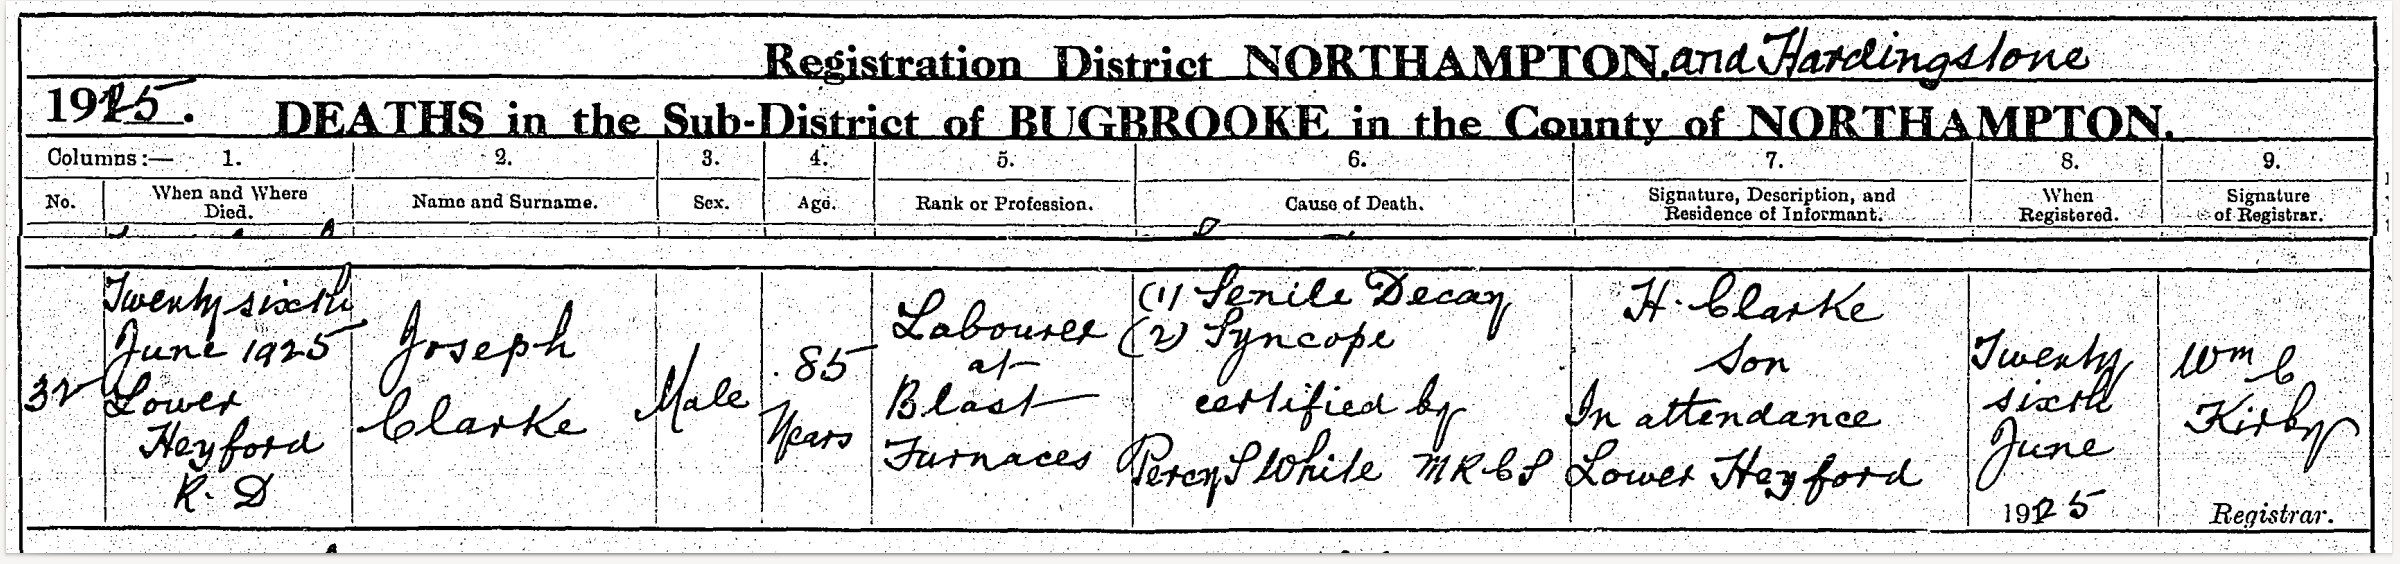 Registration District NORTHAMPTON. and Hardingstone
1925. DEATHS in the Sub-District of BUGBROOKE in the County of NORTHAMPTON.
Columns:— 1. 2. 3. 4. 5. 6. 7. 8. 9.
No. When and Where Died. Name and Surname. Sex. Age. Rank or Profession. Cause of Death. Signature, Description, and Residence of Informant. When Registered. Signature of Registrar.
32
Twenty sixth
June 1925
Lower
Heyford
R. D
Joseph
Clarke
Male
85
Years
Labourer
at
Blast
Furnaces
(1) Senile Decay
(2) Syncope
certified by
Percy S White MRCS
H. Clarke
Son
In attendance
Lower Heyford
Twenty
sixth
June
1925
Wm C
Kirby
Registrar.